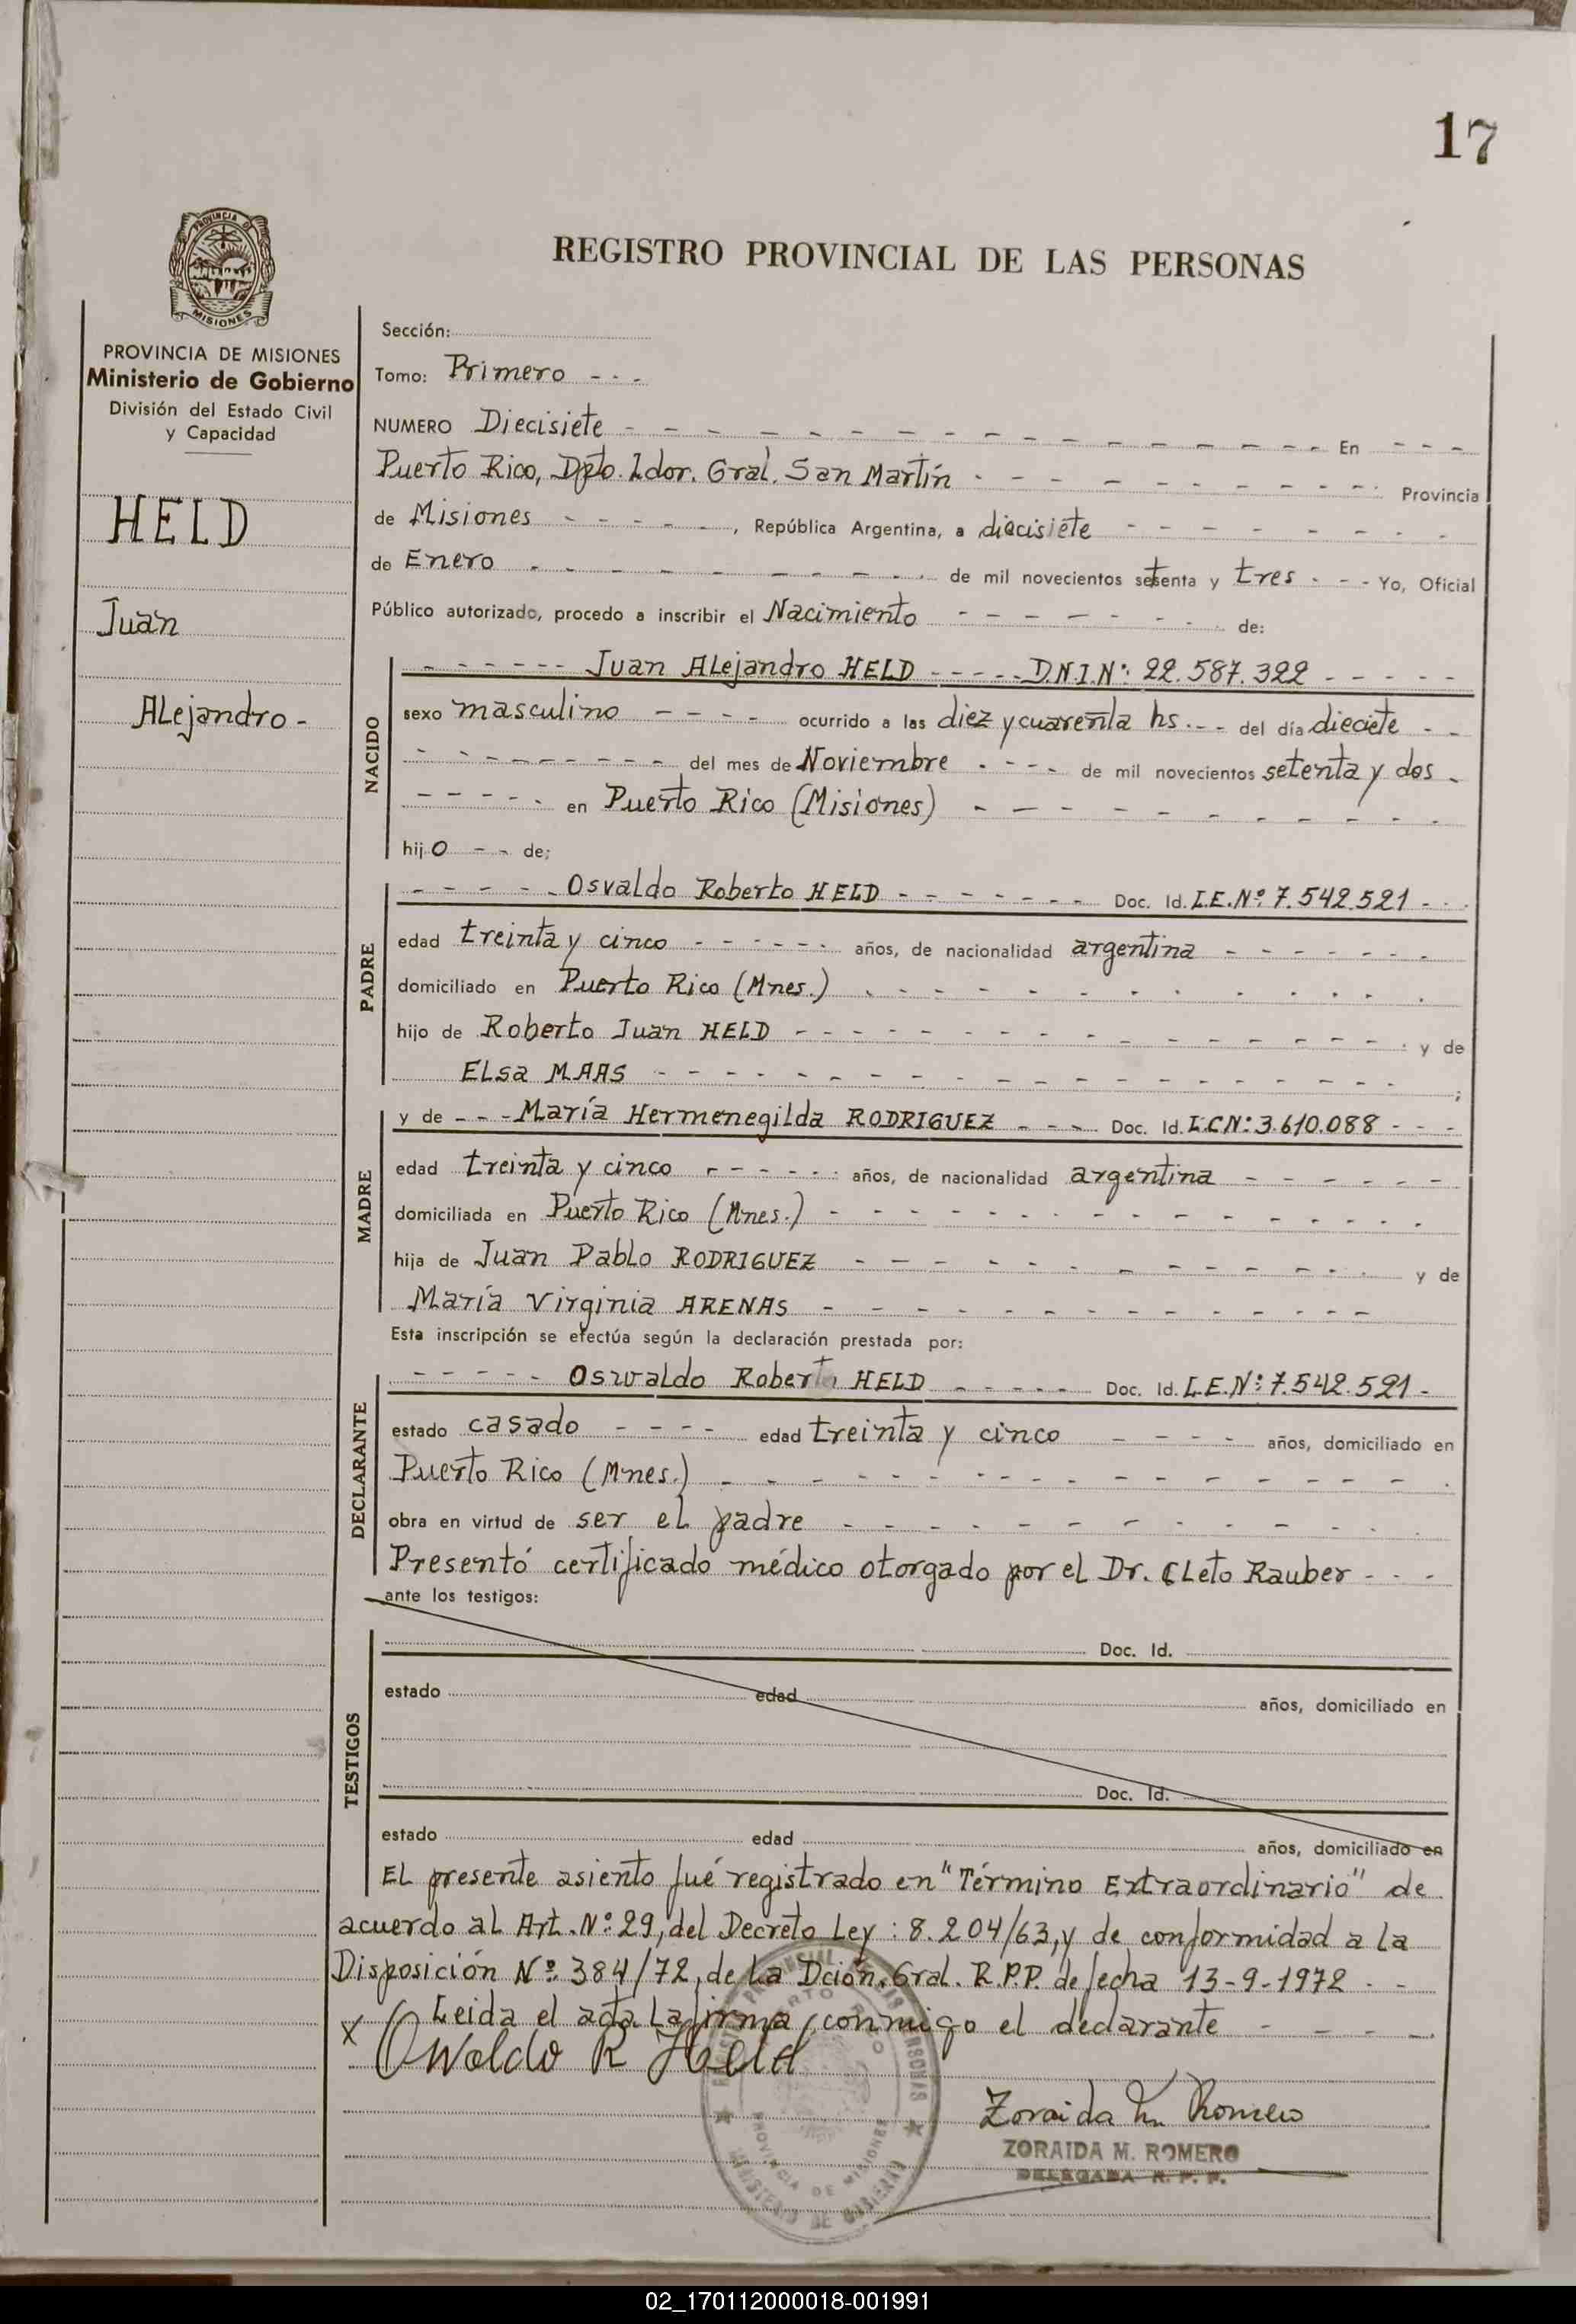 17
PROVINCIA DE MISIONES
REGISTRO PROVINCIAL DE LAS PERSONAS
PROVINCIA DE MISIONES
Ministerio de Gobierno
División del Estado Civil
y Capacidad
HELD
Juan
ALejandro -
Sección:
Tomo: Primero - - -
NUMERO Diecisiete - - - - - - - - - - - - - - - - - En - - -
Puerto Rico, Dpto. Ldor. Gral. San Martín - - - - - - - - - - Provincia
de Misiones - - - - -, República Argentina, a diecisiete - - - - - - - - -
de Enero - - - - - - - - - - de mil novecientos setenta y tres - - - Yo, Oficial
Público autorizado, procedo a inscribir el Nacimiento - - - - - - - - de:
NACIDO
- - - - - - Juan ALejandro HELD - - - - - D.N.I.Nº: 22.587.322 - - - - -
sexo masculino - - - - - ocurrido a las diez y cuarenta hs. - - del día dieciete - -
- - - - - - - - del mes de Noviembre - - - - de mil novecientos setenta y dos -
- - - - - en Puerto Rico (Misiones) - - - - - - - - - - -
hijo - - de;
PADRE
- - - - - Osvaldo Roberto HELD - - - - - - - Doc. Id. L.E.Nº: 7.542.521 - - -
edad treinta y cinco - - - - - - años, de nacionalidad argentina - - - - - - -
domiciliado en Puerto Rico (Mnes.) - - - - - - - - - - - - -
hijo de Roberto Juan HELD - - - - - - - - - - - - - - - y de
ELsa MAAS - - - - - - - - - - - - - - - - - - ;
MADRE
y de - - - María Hermenegilda RODRIGUEZ - - - - Doc. Id. L.C.Nº: 3.610.088 - - -
edad treinta y cinco - - - - - - años, de nacionalidad argentina - - - - - -
domiciliada en Puerto Rico (Mnes.) - - - - - - - - - - - - - - -
hija de Juan Pablo RODRIGUEZ - - - - - - - - - - - - - y de
María Virginia ARENAS - - - - - - - - - - - - - -
Esta inscripción se efectúa según la declaración prestada por:
DECLARANTE
- - - - - Osvaldo Roberto HELD - - - - - Doc. Id. L.E.Nº: 7.542.521 -
estado casado - - - - edad treinta y cinco - - - - años, domiciliado en
Puerto Rico (Mnes.) - - - - - - - - - - - - - - - - -
obra en virtud de ser el padre - - - - - - - - - - - -
Presentó certificado médico otorgado por el Dr. CLeto Rauber - - -
ante los testigos:
TESTIGOS
Doc. Id.
estado edad años, domiciliado en
Doc. Id.
estado edad años, domiciliado en
EL presente asiento fué registrado en "Término Extraordinario" de
acuerdo al Art. Nº: 29, del Decreto Ley: 8.204/63, y de conformidad a la
Disposición Nº: 384/72, de La Dción. Gral. R.P.P. de fecha 13-9-1972 - -
Leida el acta La firma, conmigo el declarante - - - -
x Oswaldo R Held
PUERTO RICO
PROVINCIA DE MISIONES
MINISTERIO DE GOBIERNO
Zoraida M. Romero
ZORAIDA M. ROMERO
DELEGADA R. P. P.
02_170112000018-001991